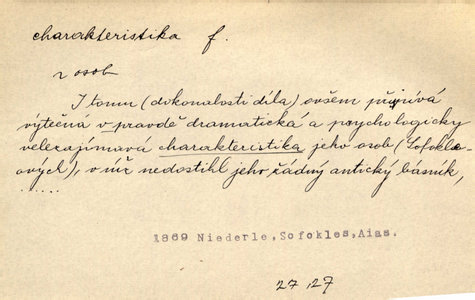 charakteristika f.
osob
I tomu (dokonalosti díla) ovšem přispívá
výtečná v pravdě dramatická a psychologicky
velezajímavá charakteristika jeho osob (Sofokle-
ových), v níž nedostihl jeho žádný antický básník,
......
1869 Niederle, Sofokles, Aias.
27,27